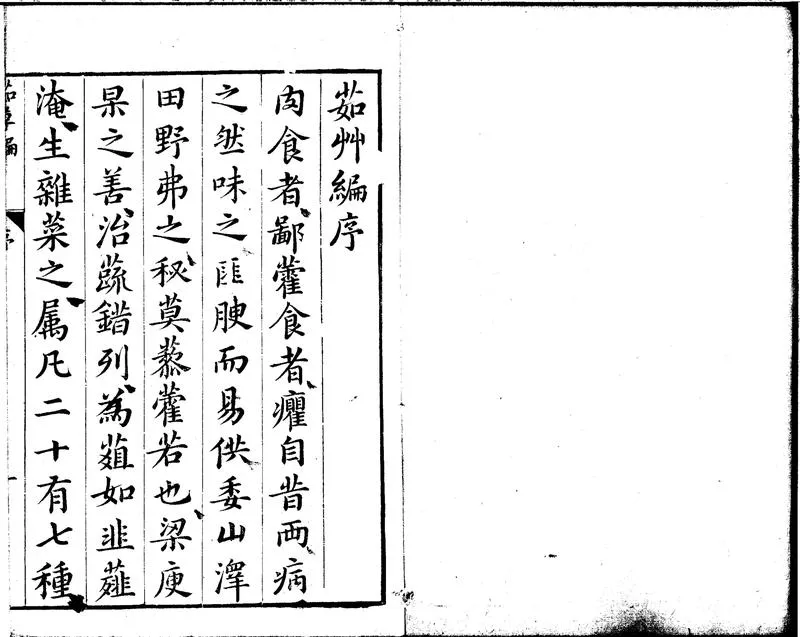 茹艸編序
肉食者鄙藿食者癯自昔両病
之然味之匪腴而易供委山澤
田野弗之秘莫藜藿若也梁庾
杲之善治蔬錯列為葅如韭薤
淹生雜菜之属凡二十有七種
茹草編 序 一